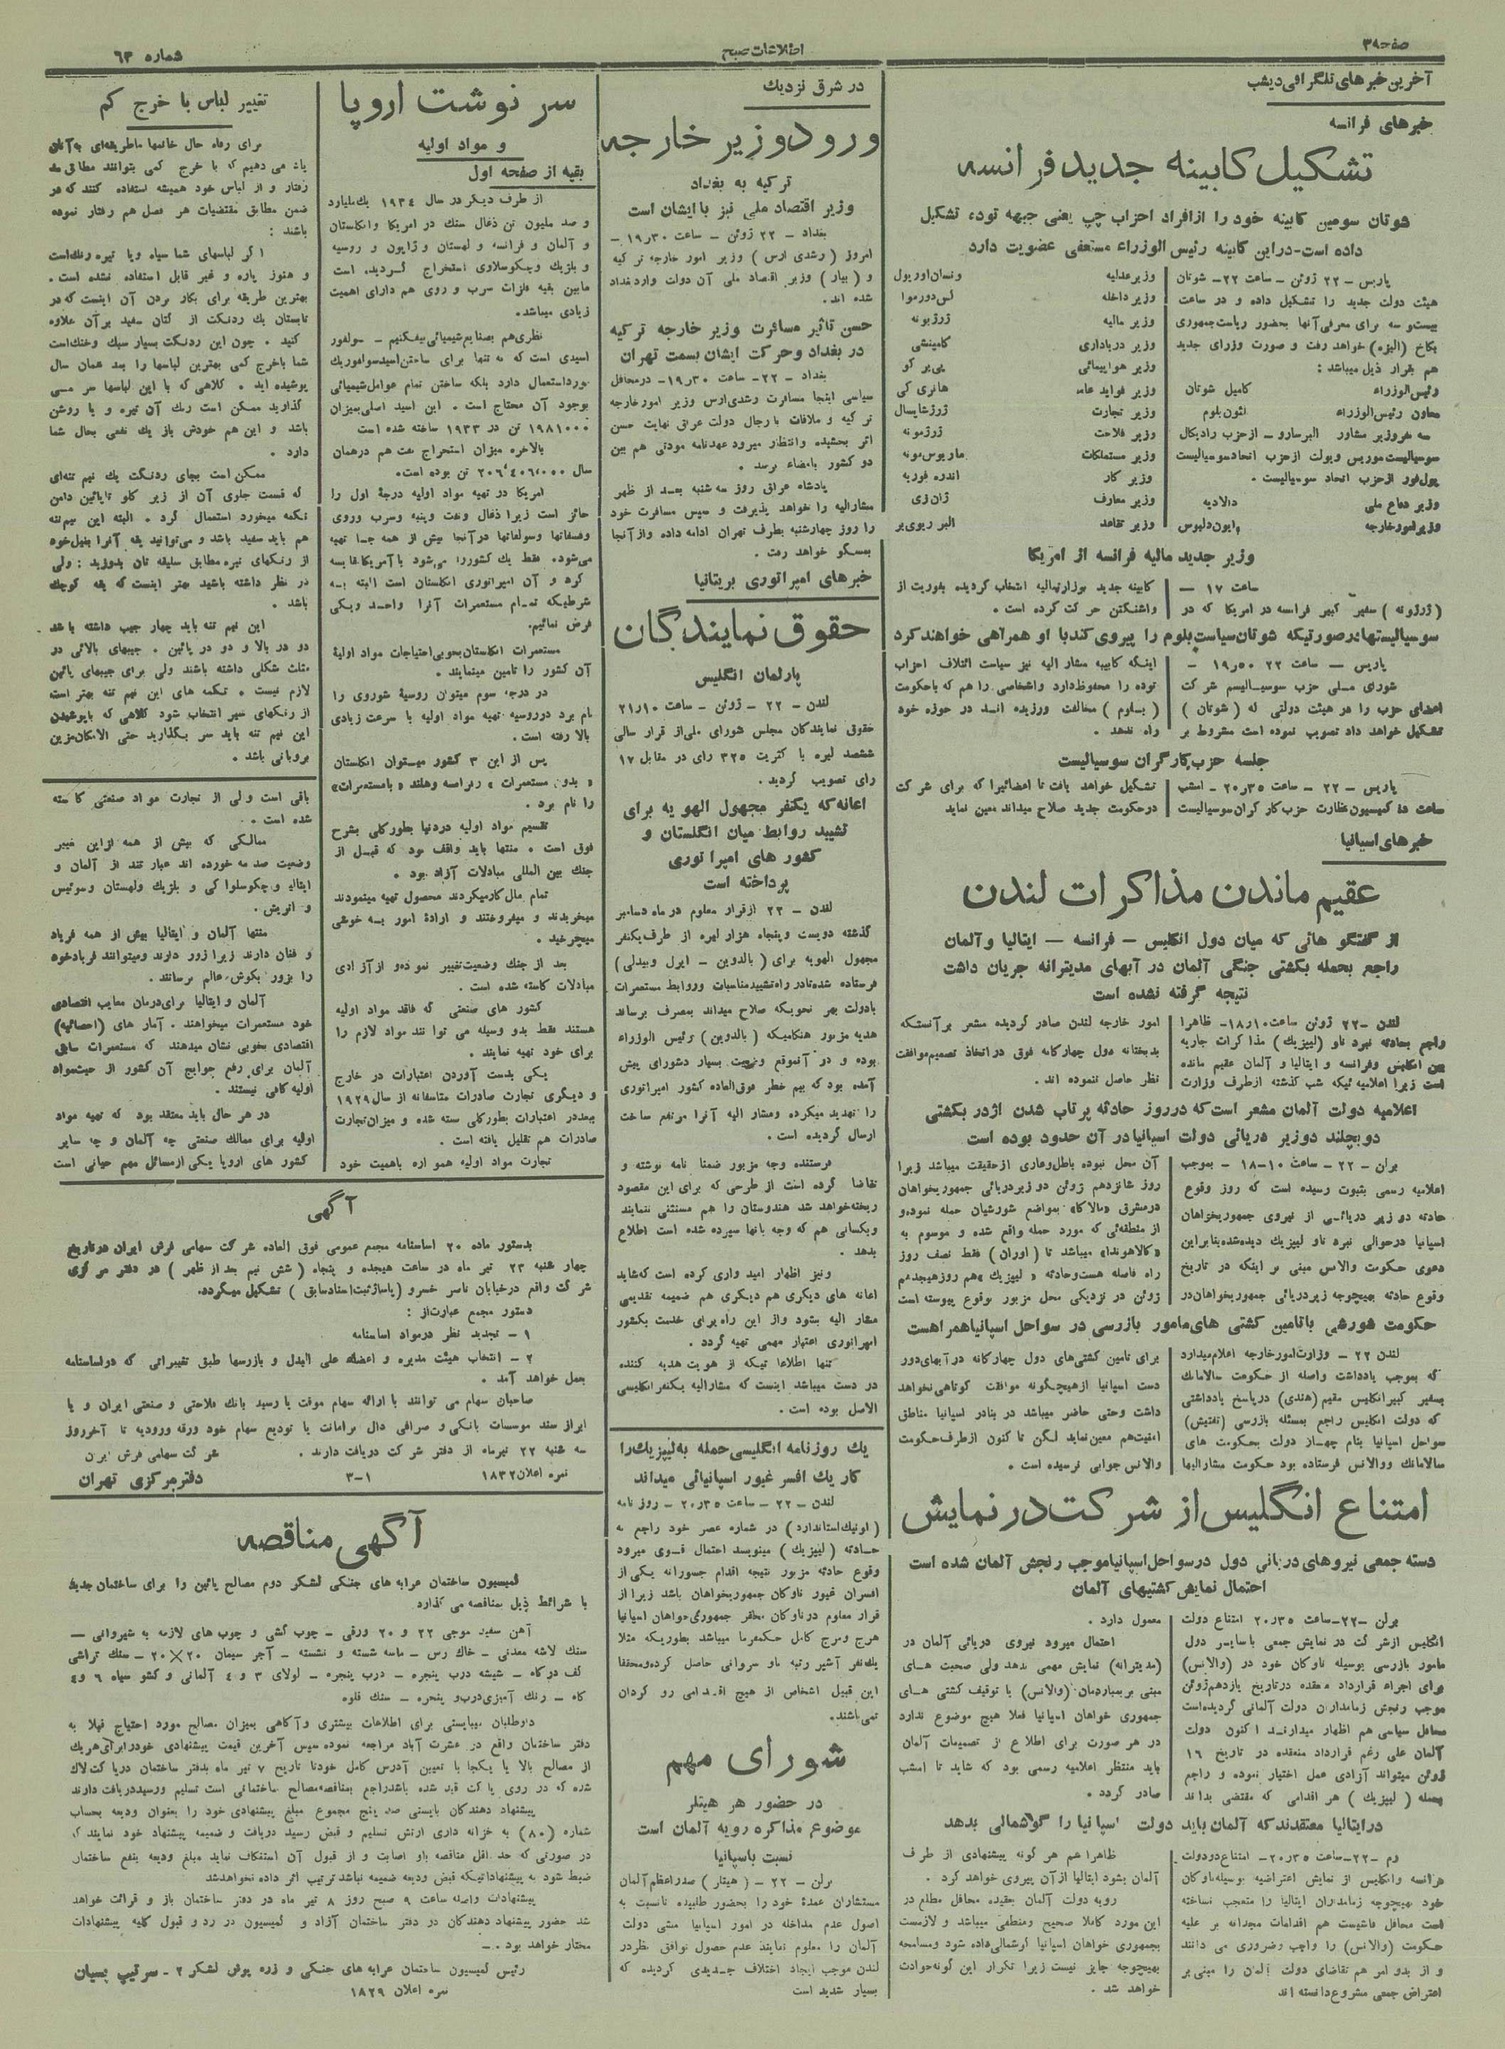 صفحه ۳۸
اطلاعات صبح
شماره ۶۳
آخرین خبرهای تلگرافی دیشب
خبرهای فرانسه
تشکیل کابینه جدید فرانسه
شوتان سومین کابینه خود را از افراد احزاب چپ یعنی جبهه توده تشکیل
داده است-در این کابینه رئیس الوزراء مستعفی عضویت دارد
پاریس - ۲۲ ژوئن - ساعت ۲۲- شوتان
هیئت دولت جدید را تشکیل داده و در ساعت
بیست و سه برای معرفی آنها بحضور ریاست جمهوری
بکاخ (الیزه) خواهد رفت و صورت وزرای جدید
هم بقرار ذیل میباشد :
رئیس الوزراء کامیل شوتان
معاون رئیس الوزراء لئون بلوم
سه نفر وزیر مشاور البر سارو - از حزب رادیکال
سوسیالیست موریس ویولت از حزب اتحاد سوسیالیست
پول فور از حزب اتحاد سوسیالیست .
وزیر دفاع ملی دالادیه
وزیر امور خارجه ایون دلبوس
وزیر عدلیه ونسان اوریول
وزیر داخله
وزیر مالیه ژرژ بونه
وزیر درباداری کامپنشی
وزیر هواپیمائی پی بر کو
وزیر فواید عامه هانری کی
وزیر تجارت ژرژ شاپسال
وزیر فلاحت ژرژ مونه
وزیر مستملکات ماریوس مونه
وزیر کار اندره فوریه
وزیر معارف ژان زی
وزیر تقاعد البر ریوی بر
وزیر جدید مالیه فرانسه از امریکا
ساعت ۱۷ -
(ژرژ بونه) سفیر کبیر فرانسه در امریکا که در
کابینه جدید بوزارتمالیه انتخاب گردیده بفوریت از
واشنگتن حرکت کرده است .
سوسیالیستها در صورتیکه شوتان سیاست بلوم را پیروی کند با او همراهی خواهند کرد
پاریس - ساعت ۲۲ ۵۰ر۱۹ -
شورای ملی حزب سوسیالیسم شرکت
اعضای حزب را در هیئت دولتی که (شوتان)
تشکیل خواهد داد تصویب نموده است مشروط بر
اینکه کابینه مشار الیه نیز سیاست ائتلاف احزاب
توده را محفوظ دارد و اشخاصی را هم که با حکومت
(بلوم) مخالفت ورزیده اند در حوزه خود
راه ندهد .
جلسه حزب کارگران سوسیالیست
پاریس - ۲۲ - ساعت ۳۵ر۲۰ - امشب
ساعت ۵ کمیسیون نظارت حزب کارگران سوسیالیست
تشکیل خواهد یافت تا اعضائیرا که برای شرکت
در حکومت جدید صلاح میداند معین نماید
خبرهای اسپانیا
عقیم ماندن مذاکرات لندن
از گفتگو هائی که میان دول انگلیس - فرانسه - ایتالیا و آلمان
راجع بحمله بکشتی جنگی آلمان در آبهای مدیترانه جریان داشت
نتیجه گرفته نشده است
لندن -۲۲ ژوئن ساعت ۱۰ر۱۸- ظاهرا
راجع بحادثه نبرد ناو (لیپزیک) مذاکرات جاریه
بین انگلیس و فرانسه و ایتالیا و آلمان عقیم مانده
است زیرا اعلامیه ئیکه شب گذشته از طرف وزارت
امور خارجه لندن صادر گردیده مشعر بر آنستکه
بدبختانه دول چهارگانه فوق در اتخاذ تصمیم موافقت
نظر حاصل ننموده اند .
اعلامیه دولت آلمان مشعر است که در روز حادثه پرتاب شدن اژدر بکشتی
دو بچلند دو زیر دریائی دولت اسپانیا در آن حدود بوده است
بران - ۲۲ - ساعت ۱۰-۱۸ - بموجب
اعلامیه رسمی بثبوت رسیده است که روز وقوع
حادثه دو زیر دریائی از نیروی جمهوریخواهان
اسپانیا در حوالی نبرد ناو لیپزیک دیده شده بنابراین
دعوی حکومت والانس مبنی بر اینکه در تاریخ
وقوع حادثه بهیچوجه زیر دریائی جمهوریخواهان در
آن محل نبوده باطل و عاری از حقیقت میباشد زیرا
روز شانزدهم ژوئن دو زیر دریائی جمهوریخواهان
در مشرق «مالاکا» بمواضع شورشیان حمله نموده و
از منطقه‌ای که مورد حمله واقع شده و موسوم به
«کالاهوندا» میباشد تا (اوران) فقط نصف روز
راه فاصله هست و حادثه «لیپزیک» هم روز هیجدهم
ژوئن در نزدیکی محل مزبور بوقوع پیوسته است
حکومت شورشی با تامین کشتی های مامور بازرسی در سواحل اسپانیا همراهست
لندن ۲۲ - وزارت امور خارجه اعلام میدارد
که بموجب یادداشت واصله از حکومت سالامانک
بسفیر کبیر انگلیس مقیم (هندی) در پاسخ یادداشتی
که دولت انگلیس راجع بمسئله بازرسی (تفتیش)
سواحل اسپانیا بنام چهار دولت بحکومت های
سالامانک و والانس فرستاده بود حکومت مشارالیها
برای تامین کشتی‌های دول چهارگانه در آبهای دور
دست اسپانیا از هیچگونه موافقت کوتاهی نخواهد
داشت و حتی حاضر میباشد در بنادر اسپانیا مناطق
امنیت هم معین نماید لکن تا کنون از طرف حکومت
والانس جوابی نرسیده است .
امتناع انگلیس از شرکت در نمایش
دسته جمعی نیروهای دریائی دول در سواحل اسپانیا موجب رنجش آلمان شده است
احتمال نمایش کشتیهای آلمان
برلن -۲۲-ساعت ۳۵ر۲۰ امتناع دولت
انگلیس از شرکت در نمایش جمعی با سایر دول
مامور بازرسی بوسیله ناوگان خود در (والانس)
برای اجراء قرارداد منعقده در تاریخ یازدهم ژوئن
موجب رنجش زمامداران دولت آلمانی گردیده است
محافل سیاسی هم اظهار میدارند اکنون دولت
آلمان علی رغم قرارداد منعقده در تاریخ ۱۶
ژوئن میتواند آزادی عمل اختیار نموده و راجع
بحمله (لیپزیک) هر اقدامی که مقتضی بداند
معمول دارد .
احتمال میرود نیروی دریائی آلمان در
(مدیترانه) نمایش مهمی بدهد ولی صحبت های
مبنی بر بمباردمان (والانس) یا توقیف کشتی های
جمهوری خواهان اسپانیا فعلا هیچ موضوع ندارد
در هر صورت برای اطلاع از تصمیمات آلمان
باید منتظر اعلامیه رسمی بود که شاید تا امشب
صادر گردد .
در ایتالیا معتقدند که آلمان باید دولت اسپانیا را گوشمالی بدهد
رم -۲۲-ساعت ۳۵ر۲۰- امتناع دو دولت
فرانسه و انگلیس از نمایش اعتراضیه بوسیله ناوگان
خود بهیچوجه زمامداران ایتالیا را متعجب نساخته
است محافل فاشیست هم اقدامات مجدانه بر علیه
حکومت (والانس) را واجب و ضروری می دانند
و از بدو امر هم تقاضای دولت آلمان را مبنی بر
اعتراض جمعی مشروع دانسته اند
ظاهرا هم هر گونه پیشنهادی از طرف
آلمان بشود ایتالیا از آن پیروی خواهد کرد .
رویه دولت آلمان بعقیده محافل مطلع در
این مورد کاملا صحیح و منطقی میباشد و لازمست
بجمهوری خواهان اسپانیا گوشمالی داده شود و مسامحه
بهیچوجه جایز نیست زیرا تکرار این گونه حوادث
خواهد شد .
در شرق نزدیک
ورود وزیر خارجه
ترکیه به بغداد
وزیر اقتصاد ملی نیز با ایشان است
بغداد - ۲۲ ژوئن - ساعت ۳۰ر۱۹ -
امروز (رشدی ارس) وزیر امور خارجه ترکیه
و (بیار) وزیر اقتصاد ملی آن دولت وارد بغداد
شده اند .
حسن تاثیر مسافرت وزیر خارجه ترکیه
در بغداد و حرکت ایشان بسمت تهران
بغداد -۲۲- ساعت ۳۰ر۱۹- در محافل
سیاسی اینجا مسافرت رشدی ارس وزیر امور خارجه
ترکیه و ملاقات با رجال دولت عراق نهایت حسن
اثر بخشیده و انتظار میرود عهدنامه مودتی هم بین
دو کشور بامضاء برسد .
پادشاه عراق روز سه شنبه بعد از ظهر
مشارالیه را خواهد پذیرفت و سپس مسافرت خود
را روز چهارشنبه بطرف تهران ادامه داده و از آنجا
بمسکو خواهد رفت .
خبرهای امپراتوری بریتانیا
حقوق نمایندگان
پارلمان انگلیس
لندن - ۲۲ - ژوئن - ساعت ۱۰ر۲۱
حقوق نمایندگان مجلس شورای ملی از قرار سالی
ششصد لیره با کثریت ۳۲۵ رای در مقابل ۱۷
رای تصویب گردید .
اعانه که یکنفر مجهول الهویه برای
تشیید روابط میان انگلستان و
کشور های امپراتوری
پرداخته است
لندن - ۲۲ از قرار معلوم در ماه دسامبر
گذشته دویست و پنجاه هزار لیره از طرف یکنفر
مجهول الهویه برای (بالدوین - ایرل و بیدلی)
فرستاده شده تا در راه تشیید مناسبات و روابط مستعمرات
با دولت بهر نحویکه صلاح میداند بمصرف برساند
هدیه مزبور هنگامیکه (بالدوین) رئیس الوزراء
بوده و در آنموقع وضعیت بسیار دشواری پیش
آمده بود که بیم خطر فوق‌العاده کشور امپراتوری
را تهدید میکرده و مشار الیه آنرا مرتفع ساخت
ارسال گردیده است .
فرستنده وجه مزبور ضمنا نامه نوشته و
تقاضا کرده است از طرحی که برای این مقصود
ریخته خواهد شد هندوستان را هم مستثنی ننمایند
و بکسانی هم که وجه بانها سپرده شده است اطلاع
بدهد .
ونیز اظهار امید واری کرده است که شاید
اعانه های دیگری هم دیگری هم ضمیمه تقدیمی
مشار الیه بشود و از این راه برای خدمت بکشور
امپراتوری اعتبار مهمی تهیه گردد .
تنها اطلاعاتیکه از هویت هدیه کننده
در دست میباشد اینست که مشارالیه یکنفر انگلیسی
الاصل بوده است .
یک روزنامه انگلیسی حمله به لیپزیک را
کار یک افسر غیور اسپانیائی میداند
لندن - ۲۲ - ساعت ۳۵ر۲۰ - روز نامه
(اونیک استاندارد) در شماره عصر خود راجع به
حادثه (لیپزیک) مینویسد احتمال قوی میرود
وقوع حادثه مزبور نتیجه اقدام جسورانه یکی از
افسران غیور ناوگان جمهوریخواهان باشد زیرا از
قرار معلوم در ناوگان مظفر جمهوری خواهان اسپانیا
هرج و مرج کامل حکمفرما میباشد بطوریکه مثلا
یکنفر آشپز رتبه ناو سروانی حاصل کرده و محققا
این قبیل اشخاص از هیچ اقدامی رو گردان
نمی باشند.
شورای مهم
در حضور هر هیتلر
موضوع مذاکره رویه آلمان است
نسبت باسپانیا
برلن - ۲۲ - (هیتلر) صدر اعظم آلمان
مستشاران عمدهٔ خود را بحضور طلبیده تا نسبت به
اصول عدم مداخله در امور اسپانیا مشی دولت
آلمان را معلوم نمایند عدم حصول توافق نظر در
لندن موجب ایجاد اختلاف جدیدی گردیده که
بسیار شدید است
سرنوشت اروپا
و مواد اولیه
بقیه از صفحه اول
از طرف دیگر در سال ۱۹۳۴ یک ملیارد
و صد ملیون تن ذغال سنک در امریکا و انگلستان
و آلمان و فرانسه و لهستان و ژاپون و روسیه
و بلژیک و چکوسلاوی استخراج گردید. است
مابین بقیه فلزات سرب و روی هم دارای اهمیت
زیادی میباشد.
نظری هم بصنایع شیمیائی بیفکنیم - سولفور
اسیدی است که نه تنها برای ساختن اسید سولفوریک
مورد استعمال دارد بلکه ساختن تمام عوامل شیمیائی
بوجود آن محتاج است . این اسید اصلی بمیزان
۱۹۸۱۰۰۰ تن در ۱۹۳۳ ساخته شده است
بالاخره میزان استخراج نفت هم در همان
سال ۲۰۶٬۴۰۶٬۰۰۰ تن بوده است.
امریکا در تهیه مواد اولیه درجهٔ اول را
حائز است زیرا ذغال و نفت و پنبه و سرب و روی
و فسفاتها و سولفاتها در آنجا بیش از همه جا تهیه
می‌شود. فقط یک کشور را می‌شود با آمریکا مقایسه
کرد و آن امپراتوری انگلستان است البته به
شرطیکه تمام مستعمرات آنرا واحد و یکی
فرض نمائیم.
مستعمرات انگلستان بخوبی احتیاجات مواد اولیهٔ
آن کشور را تامین مینمایند .
در درجه سوم میتوان روسیهٔ شوروی را
نام برد در روسیه تهیه مواد اولیه با سرعت زیادی
بالا رفته است .
پس از این ۳ کشور میتوان انگلستان
«بدون مستعمرات» و فرانسه و هلند «با مستعمرات»
را نام برد .
تقسیم مواد اولیه در دنیا بطور کلی بشرح
فوق است . منتها باید واقف بود که قبل از
جنک بین المللی مبادلات آزاد بود .
تمام ملل کار میکردند محصول تهیه مینمودند
میخریدند و میفروختند و ارادهٔ امور به خوشی
میچرخید .
بعد از جنک وضعیت تغییر نموده و از آزادی
مبادلات کاسته شده است .
کشور های صنعتی که فاقد مواد اولیه
هستند فقط بدو وسیله می توانند مواد لازم را
برای خود تهیه نمایند .
یکی بدست آوردن اعتبارات در خارج
و دیگری تجارت صادرات متاسفانه از سال ۱۹۲۹
ببعد در اعتبارات بطور کلی بسته شده و میزان تجارت
صادرات هم تقلیل یافته است .
تجارت مواد اولیه همواره باهمیت خود
تغییر لباس با خرج کم
برای رفاه حال خانمها ما طریقه‌ای به آنان
یاد می دهیم که با خرج کمی بتوانند مطابق مد
رفتار و از لباس خود همیشه استفاده کنند که در
ضمن مطابق مقتضیات هر فصل هم رفتار نموده
باشند :
اگر لباسهای شما سیاه و یا تیره رنگ است
و هنوز پاره و غیر قابل استفاده نشده است .
بهترین طریقه برای بکار بردن آن اینست که در
تابستان یک ردنگت از کتان سفید بر آن علاوه
کنید . چون این ردنگت بسیار سبک و خنک است
شما با خرج کمی بهترین لباسها را بمد همان سال
پوشیده اید . کلاهی که با این لباسها سر می
گذارید ممکن است رنک آن تیره و یا روشن
باشد و این هم خودش باز یک نفعی بحال شما
دارد .
ممکن است بجای ردنگت یک نیم تنه‌ای
که قسمت جلوی آن از زیر گلو تا پائین دامن
تکمه میخورد استعمال کرد . البته این نیم تنه
هم باید سفید باشد و می‌توانید یقه آنرا بمیل خود
از رنگهای تیره مطابق سلیقه تان بدوزید : ولی
در نظر داشته باشید بهتر اینست که یقه کوچک
باشد .
این نیم تنه باید چهار جیب داشته باشد
دو در بالا و دو در پائین . جیبهای بالائی در
مثلث شکلی داشته باشند ولی برای جیبهای پائین
لازم نیست . تکمه های این نیم تنه بهتر است
از رنگهای سیر انتخاب شود کلاهی که با پوشیدن
این نیم تنه باید سر بگذارید حتی الامکان مزین
بروبانی باشد .
باقی است ولی از تجارت مواد صنعتی کاسته
شده است .
ممالکی که بیش از همه از این تغییر
وضعیت صدمه خورده اند عبارتند از آلمان و
ایتالیا و چکوسلواکی و بلژیک و لهستان و سوئیس
و اتریش .
منتها آلمان و ایتالیا بیش از همه فریاد
و فغان دارند زیرا زور دارند و میتوانند فریاد خود
را بزور بگوش عالم برسانند .
آلمان و ایتالیا برای درمان معایب اقتصادی
خود مستعمرات میخواهند . آمار های (احصائیه)
اقتصادی بخوبی نشان میدهند که مستعمرات سابق
آلمان برای رفع حوایج آن کشور از حیث مواد
اولیه کافی نیستند .
در هر حال باید معتقد بود که تهیه مواد
اولیه برای ممالک صنعتی چه آلمان و چه سایر
کشور های اروپا یکی از مسائل مهم حیاتی است
آگهی
بدستور ماده ۲۰ اساسنامه مجمع عمومی فوق العاده شرکت سهامی فرش ایران در تاریخ
چهار شنبه ۲۳ تیر ماه در ساعت هیجده و پنجاه (شش نیم بعد از ظهر) در دفتر مرکزی
شرکت واقع در خیابان ناصر خسرو (پاساژ ثبت اسناد سابق) تشکیل میگردد.
دستور مجمع عبارت از :
۱ - تجدید نظر در مواد اساسنامه
۲ - انتخاب هیئت مدیره و اعضاء علی البدل و بازرسها طبق تغییراتی که در اساسنامه
بعمل خواهد آمد .
صاحبان سهام می توانند با ارائه سهام موقت یا رسید بانک فلاحتی و صنعتی ایران و یا
ابراز سند موسسات بانکی و صرافی دال بر امانت یا تودیع سهام خود ورقه ورودیه تا آخر روز
سه شنبه ۲۲ تیرماه از دفتر شرکت دریافت دارند . شرکت سهامی فرش ایران
نمره اعلان ۱۸۳۲ ۱-۳ دفتر مرکزی تهران
آگهی مناقصه
کمیسیون ساختمان عرابه های جنگی لشکر دوم مصالح پائین را برای ساختمان جدید
با شرائط ذیل بمناقصه می گذارد
آهن سفید موجی ۲۲ و ۲۰ ورقی - چوب کشی و چوب های لازمه به شیروانی -
سنک لاشه معدنی - خاک رس - ماسه شسته و نشسته - آجر سیمان ۲۰×۲۰ - سنک تراشی
کف درگاه - شیشه درب پنجره - درب پنجره - لولای ۳ و ۴ آلمانی و کشو سیاه ۶ و ۴
گاه - رنک آمیزی درب و پنجره - سنک قلوه
داوطلبان میبایستی برای اطلاعات بیشتری و آگاهی بمیزان مصالح مورد احتیاج قبلا به
دفتر ساختمان واقع در عشرت آباد مراجعه نموده سپس آخرین قیمت پیشنهادی خود را برای هر یک
از مصالح بالا یا یکجا با تعیین آدرس کامل خود تا تاریخ ۷ تیر ماه بدفتر ساختمان در پاکت لاک
شده که در روی پاکت قید شده باشد راجع بمناقصه مصالح ساختمانی است تسلیم و رسید دریافت دارند
پیشنهاد دهندگان بایستی صد پنج مجموع مبلغ پیشنهادی خود را بعنوان ودیعه بحساب
شماره (۸۰) به خزانه داری ارتش تسلیم و قبض رسید دریافت و ضمیمه پیشنهاد خود نمایند که
در صورتی که حد اقل مناقصه باو اصابت و از قبول آن استنکاف نماید مبلغ ودیعه بنفع ساختمان
ضبط شود به پیشنهاداتیکه قبض ودیعه ضمیمه نباشد ترتیب اثر داده نخواهد شد
پیشنهادات واصله ساعت ۹ صبح روز ۸ تیر ماه در دفتر ساختمان باز و قرائت خواهد
شد حضور پیشنهاد دهندگان در دفتر ساختمان آزاد و کمیسیون در رد و قبول کلیه پیشنهادات
مختار خواهد بود .-
رئیس کمیسیون ساختمان عرابه های جنگی و زره پوش لشکر ۲ - سرتیپ بسیان
نمره اعلان ۱۸۲۹